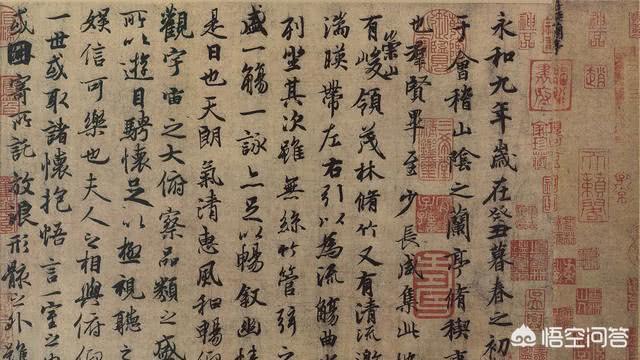 永和九年歲在癸丑暮春之初
于會稽山陰之蘭亭脩稧事
也羣賢畢至少長咸集此
有崇山峻領茂林脩竹又有清流激
湍暎帶左右引以為流觴曲水
列坐其次雖無絲竹管弦之
盛一觴一詠亦足以暢敘幽情
是日也天朗氣清惠風和暢仰
觀宇宙之大俯察品類之盛
所以遊目騁懷足以極視聽之
娛信可樂也夫人之相與俯仰
一世或取諸懷抱悟言一室之
或因寄所託放浪形骸之外雖
趙
天籟閣
悟空问答